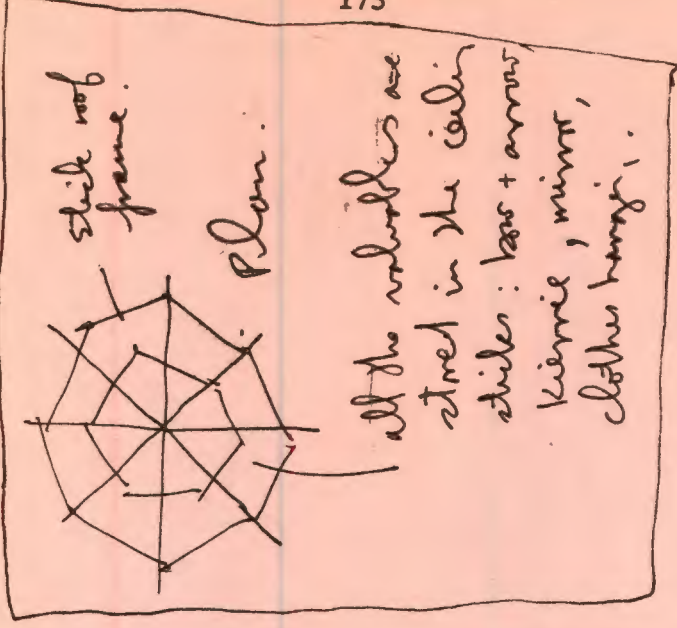 173
Stick roof
frame.
Plan.
all the valuables are
stored in the ceiling
sticks: bow + arrow
mirror,
clothes hanging.